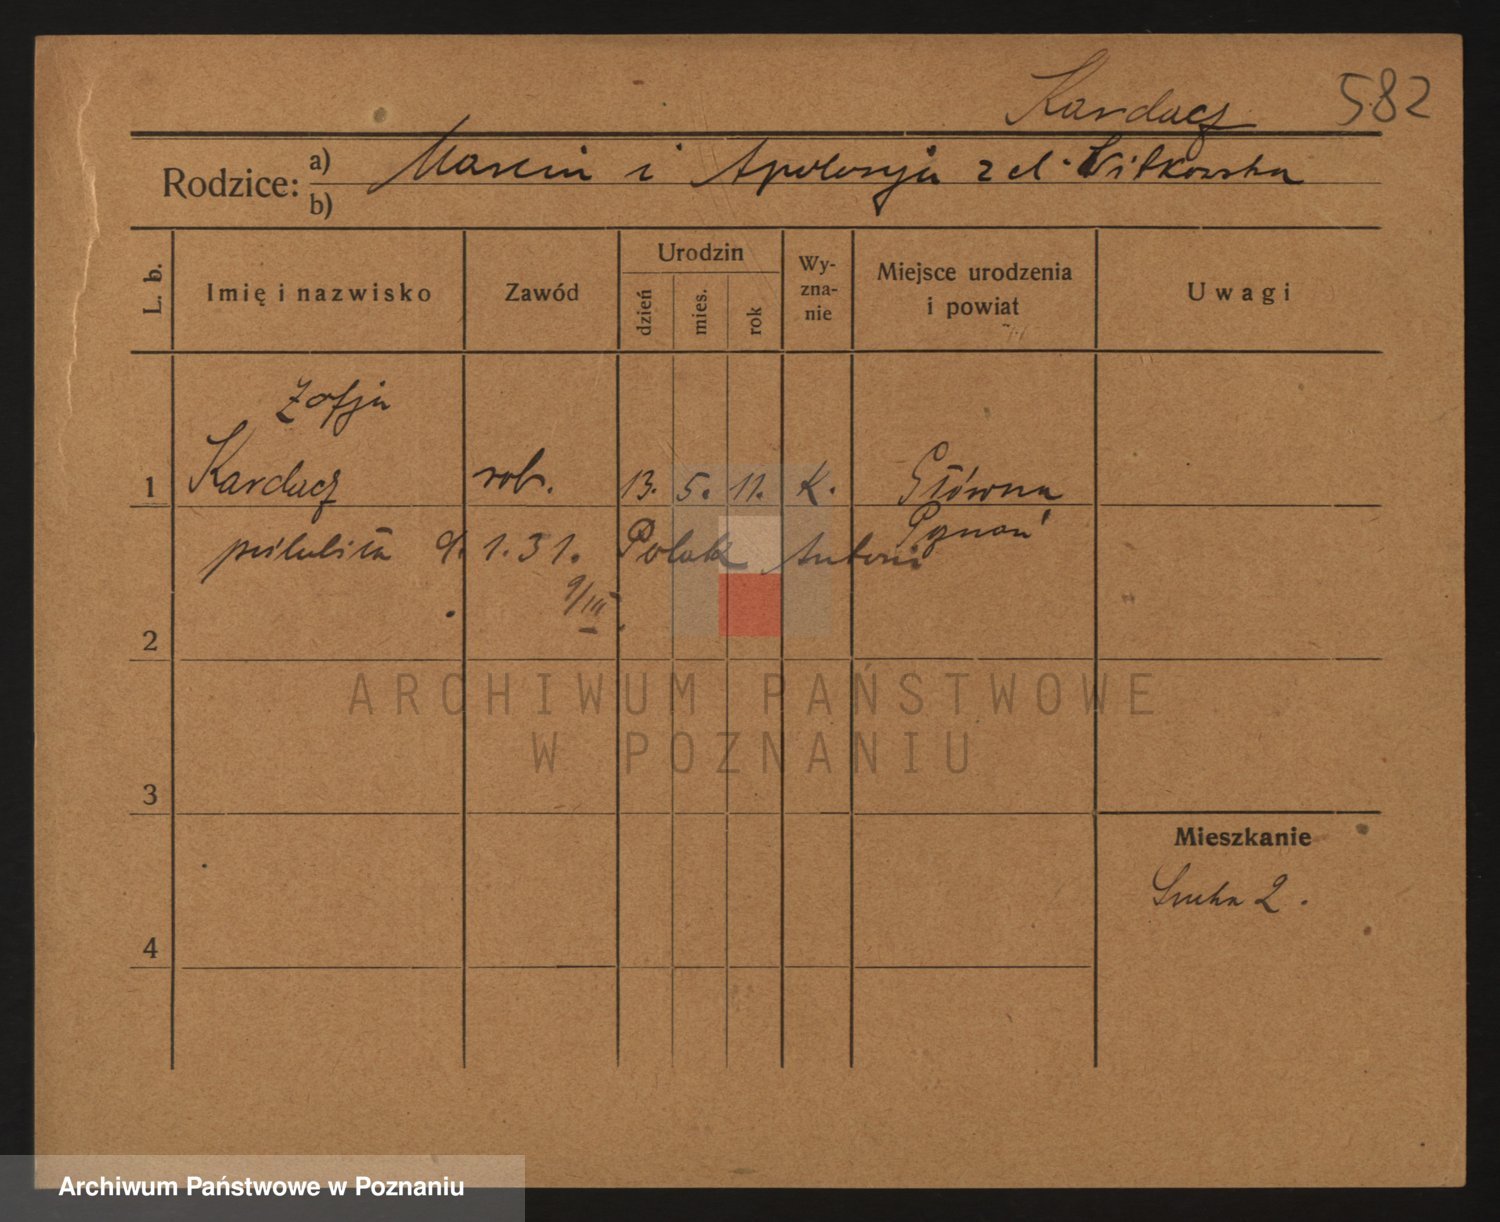 Kardacz 582
Rodzice: a) Marcin i Apolonja z d. Witkowska
b)
L. b. Imię i nazwisko Zawód Urodzin dzień mies. rok Wy-zna-nie Miejsce urodzenia i powiat Uwagi
Zofja
1 Kardacz rob. 13. 5. 11. K. Główna
Poznań
poślubiła d. 1.31. Polak Antoni
9/III
2
ARCHIWUM PAŃSTWOWE
W POZNANIU
3
Mieszkanie
Sucha 2.
4
Archiwum Państwowe w Poznaniu